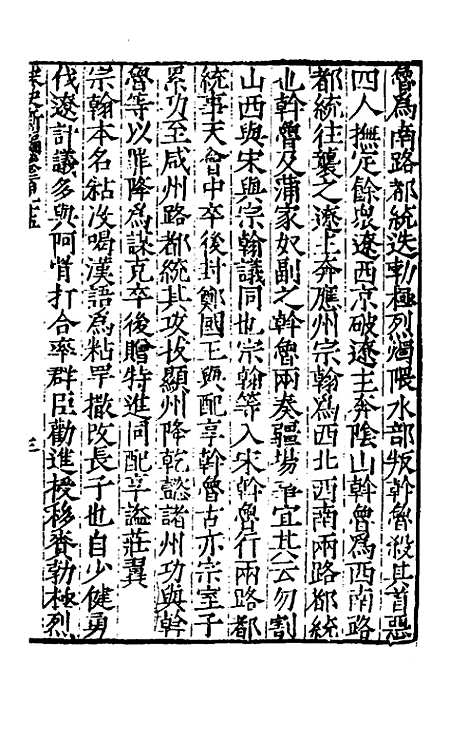 魯為南路都統迭勃極烈燭隈水部叛斡魯殺其首惡
四人撫定餘衆遼西京破遼主奔陰山斡魯為西南路
都統往襲之遼主奔應州宗翰為西北西南兩路都統
也斡魯及蒲家奴副之斡魯兩奏疆場事宜其一云勿割
山西與宋與宗翰議同也宗翰等入宋斡魯行兩路都
統事天會中卒後封鄭國王與配享斡魯古亦宗室子
累功至咸州路都統其攻拔顯州降乾懿諸州功與斡
魯等以罪降為謀克卒後贈特進同配享謚莊翼
宗翰本名粘沒喝漢語為粘罕撒改長子也自少健勇
伐遼計議多與阿骨打合率群臣勸進授移賚勃極烈
三